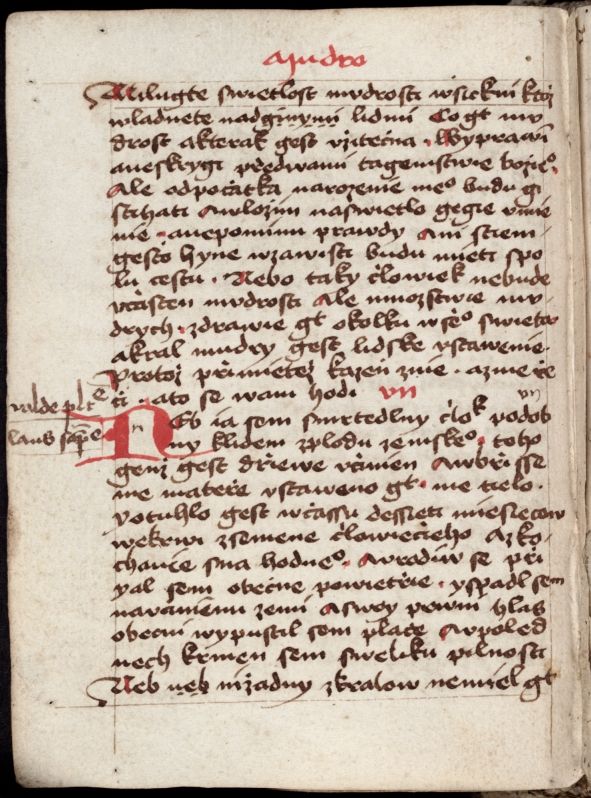 Milugte swietlost mudrosti wsickni ktoz
wladnete nad ginymi lidmi Co gt mu
drost a kterak gest vzitecna . Wyprawi
a neskrygi przed wami tagemstwie bozie°
Ale od poczatka narozenie me° budu gi
stihati A wlozim na swietlo gegie vmie
nie . a nepominu prawdy Ani s tiem
gesto hyne w zawisti budu mieti spo
lu cestu . Nebo taky czlowiek nebude
vczasten mudrosti Ale mnozstwie mu
drych . zdrawie gt okolku wse° swieta
a kral mudry gest lidske vstawenie
Protoz przimietez kazen znie . a z me rze
czi . a to se wam hodi VII
valde pulcre
laus sapie
Neb ia sem smrtedlny czlok podob
ny k lidem z plodu zemske° . toho
genz gest drziewe vczinien A w brzisse
me materze vstaweno gt . me tielo .
potuhlo gest w czassu dessieti miesiecow
we krwi z semene czlowieczieho A z ko
chanie sna hodne° . A vrodiw se przi
yal sem obecne powietrzie . y spadl sem
na rawnienu zemi A swoy prwni hlas
obecni wypustil sem placze A w poled
nech krmen sem s weliku pilnosti
Neb neb nizadny z kralow nemiel gt